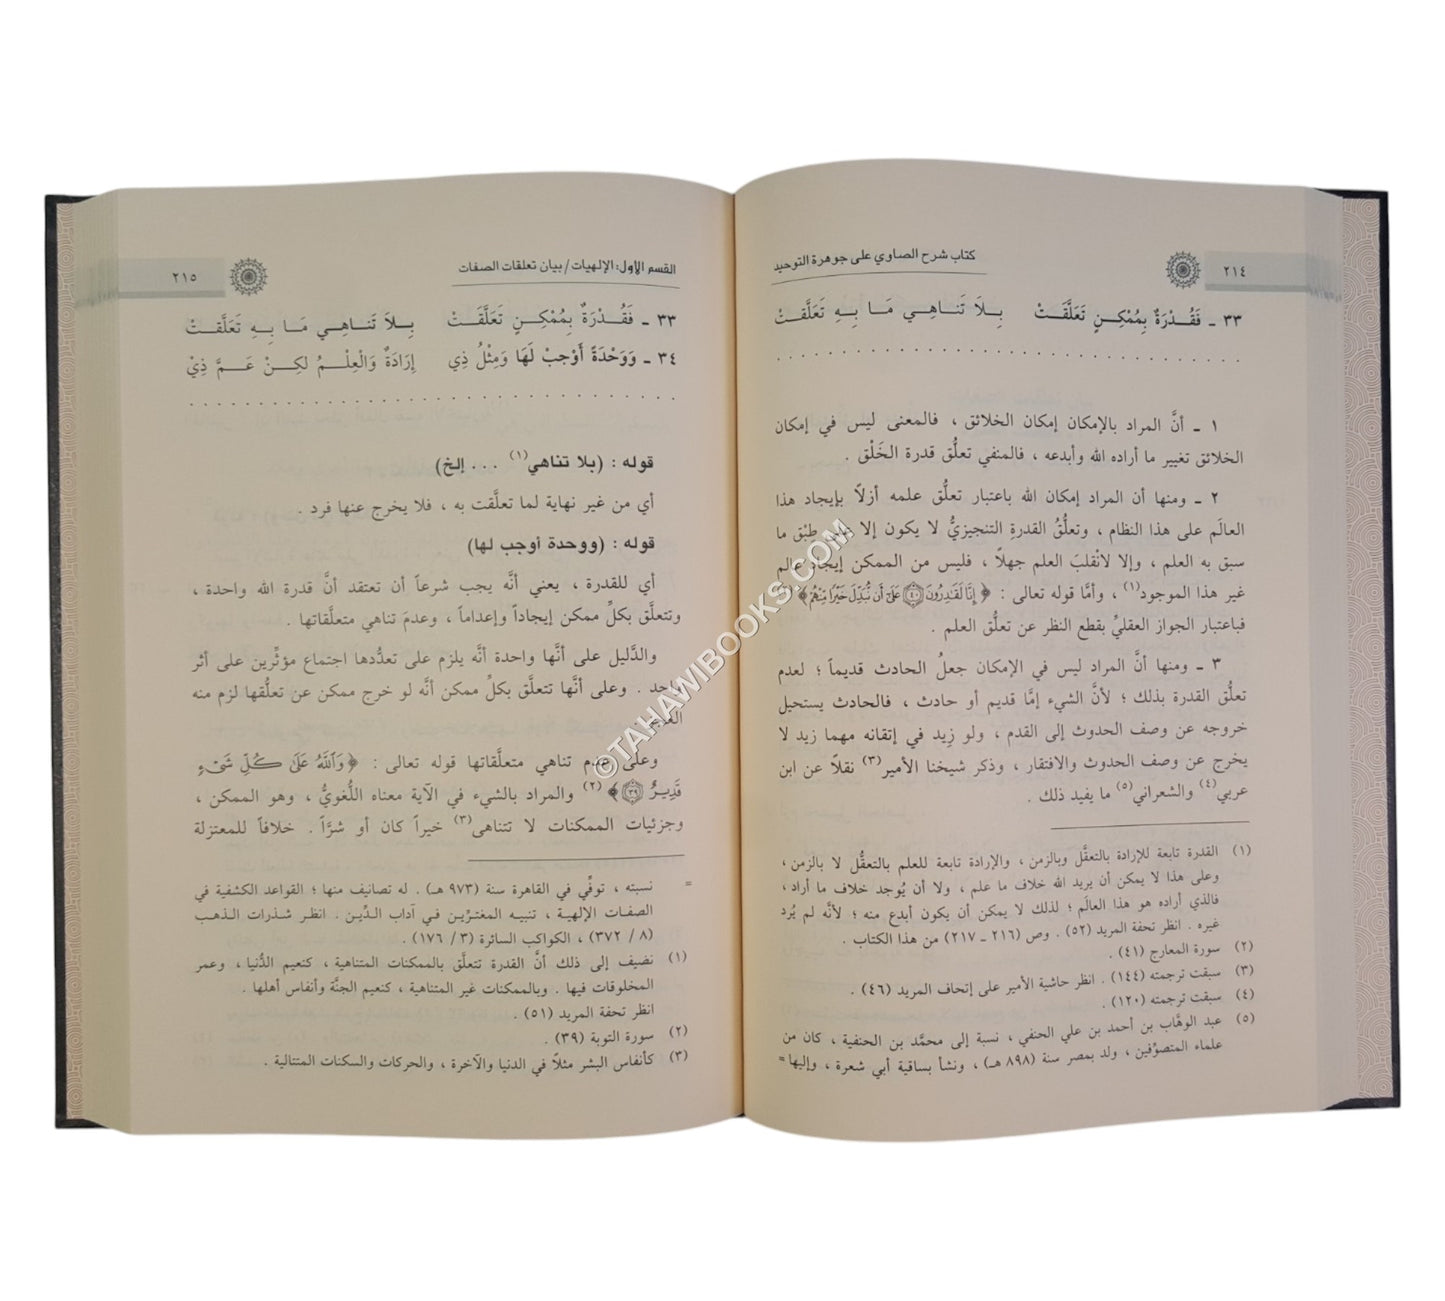 ٢١٤
كتاب شرح الصاوي على جوهرة التوحيد
٣٣ ـ فَقُـدْرَةٌ بِمُمْكِـنٍ تَعَلَّقَـتْ بِـلاَ تَنَاهِـي مَـا بِـهِ تَعَلَّقَـتْ
. . . . . . . . . . . . . . . . . . . . . . . . . . . . . . . . . .
١ ـ أنَّ المراد بالإمكان إمكان الخلائق ، فالمعنى ليس في إمكان
الخلائق تغيير ما أراده الله وأبدعه ، فالمنفي تعلُّق قدرة الخَلْق .
٢ ـ ومنها أن المراد إمكان الله باعتبار تعلُّق علمه أزلاً بإيجاد هذا
العالَم على هذا النظام ، وتعلُّقُ القدرةِ التنجيزيُّ لا يكون إلا على طِبْق ما
سبق به العلم ، وإلا لانْقلبَ العلم جهلاً ، فليس من الممكن إيجاد عالم
غير هذا الموجود(١) ، وأمَّا قوله تعالى : ﴿ إِنَّا لَقَٰدِرُونَ ۝٤٠ عَلَىٰٓ أَن نُّبَدِّلَ خَيْرًا مِّنْهُمْ ﴾
فباعتبار الجواز العقليِّ بقطع النظر عن تعلُّق العلم .
٣ ـ ومنها أنَّ المراد ليس في الإمكان جعلُ الحادث قديماً ؛ لعدم
تعلُّق القدرة بذلك ؛ لأنَّ الشيء إمَّا قديم أو حادث ، فالحادث يستحيل
خروجه عن وصف الحدوث إلى القدم ، ولو زِيد في إتقانه مهما زيد لا
يخرج عن وصف الحدوث والافتقار ، وذكر شيخنا الأمير(٣) نقلاً عن ابن
عربي(٤) والشعراني(٥) ما يفيد ذلك .
(١) القدرة تابعة للإرادة بالتعقُّل وبالزمن ، والإرادة تابعة للعلم بالتعقُّل لا بالزمن ،
وعلى هذا لا يمكن أن يريد الله خلاف ما علم ، ولا أن يُوجد خلاف ما أراد،
فالذي أراده هو هذا العالَم ؛ لذلك لا يمكن أن يكون أبدع منه ؛ لأنَّه لم يُرد
غيره . انظر تحفة المريد (٥٢) . وص (٢١٦ ـ ٢١٧) من هذا الكتاب .
(٢) سورة المعارج (٤١) .
(٣) سبقت ترجمته (١٤٤) . انظر حاشية الأمير على إتحاف المريد (٤٦) .
(٤) سبقت ترجمته (١٢٠) .
(٥) عبد الوهَّاب بن أحمد بن علي الحنفي ، نسبة إلى محمَّد بن الحنفية ، كان من
علماء المتصوِّفين ، ولد بمصر سنة (٨٩٨ هـ) ، ونشأ بساقية أبي شعرة ، وإليها =
القسم الأول: الإلهيات/ بيان تعلقات الصفات
٢١٥
٣٣ ـ فَقُـدْرَةٌ بِمُمْكِـنٍ تَعَلَّقَـتْ بِـلاَ تَنَاهِـي مَـا بِـهِ تَعَلَّقَـتْ
٣٤ ـ وَوَحْدَةً أَوْجِبْ لَهَا وَمِثْلُ ذِي إِرَادَةٌ وَالْعِلْـمُ لكِـنْ عَـمَّ ذِيْ
. . . . . . . . . . . . . . . . . . . . . . . . . . . . . . . . . .
قوله : (بلا تناهي(١) . . . إلخ)
أي من غير نهاية لما تعلَّقت به ، فلا يخرج عنها فرد .
قوله : (ووحدة أوجب لها)
أي للقدرة ، يعني أنَّه يجب شرعاً أن تعتقد أنَّ قدرة الله واحدة ،
وتتعلَّق بكلِّ ممكن إيجاداً وإعداماً ، وعدمَ تناهي متعلَّقاتها .
والدَّليل على أنَّها واحدة أنَّه يلزم على تعدُّدها اجتماع مؤثِّرين على أثر
واحد . وعلى أنَّها تتعلَّق بكلِّ ممكن أنَّه لو خرج ممكن عن تعلُّقها لزم منه
العجز .
وعلى عدم تناهي متعلَّقاتها قوله تعالى : ﴿ وَٱللَّهُ عَلَىٰ كُلِّ شَىْءٍ
قَدِيرٌ ۝٣٩ ﴾ (٢) والمراد بالشيء في الآية معناه اللُّغويُّ ، وهو الممكن ،
وجزئيات الممكنات لا تتناهى(٣) خيراً كان أو شرَّاً . خلافاً للمعتزلة
= نسبته ، توفِّي في القاهرة سنة (٩٧٣ هـ) . له تصانيف منها ؛ القواعد الكشفية في
الصفـات الإلهيـة ، تنبيـه المغترّيـن فـي آداب الـدِّيـن . انظـر شـذرات الـذهـب
(٨ / ٣٧٢) ، الكواكب السائرة (٣ / ١٧٦) .
(١) نضيف إلى ذلك أنَّ القدرة تتعلَّق بالممكنات المتناهية ، كنعيم الدُّنيا ، وعمر
المخلوقات فيها . وبالممكنات غير المتناهية ، كنعيم الجنَّة وأنفاس أهلها .
انظر تحفة المريد (٥١) .
(٢) سورة التوبة (٣٩) .
(٣) كأنفاس البشر مثلاً في الدنيا والآخرة ، والحركات والسكنات المتتالية .
©TAHAWIBOOKS.COM